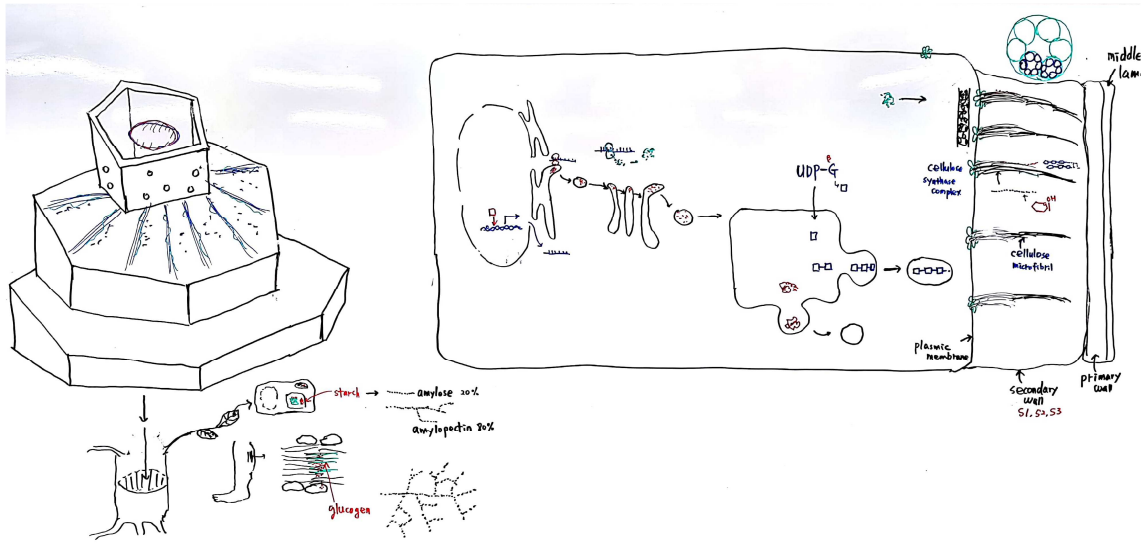 middle
lam
UDP-G
β
cellulose
synthase
complex
OH
cellulose
microfibril
plasmic
membrane
secondary
wall
S1, S2, S3
primary
wall
starch
amylose 20%
amylopoctin 80%
glucogen